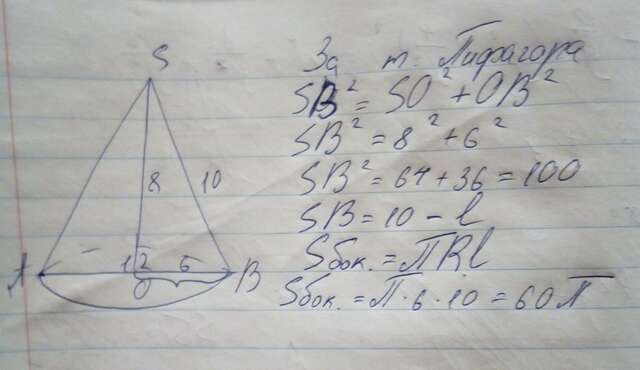 S
8
10
12
6
A
O
B
За т. Піфагора
SB² = SO² + OB²
SB² = 8² + 6²
SB² = 64 + 36 = 100
SB = 10 - l
Sбок. = ПRl
Sбок. = П · 6 · 10 = 60П